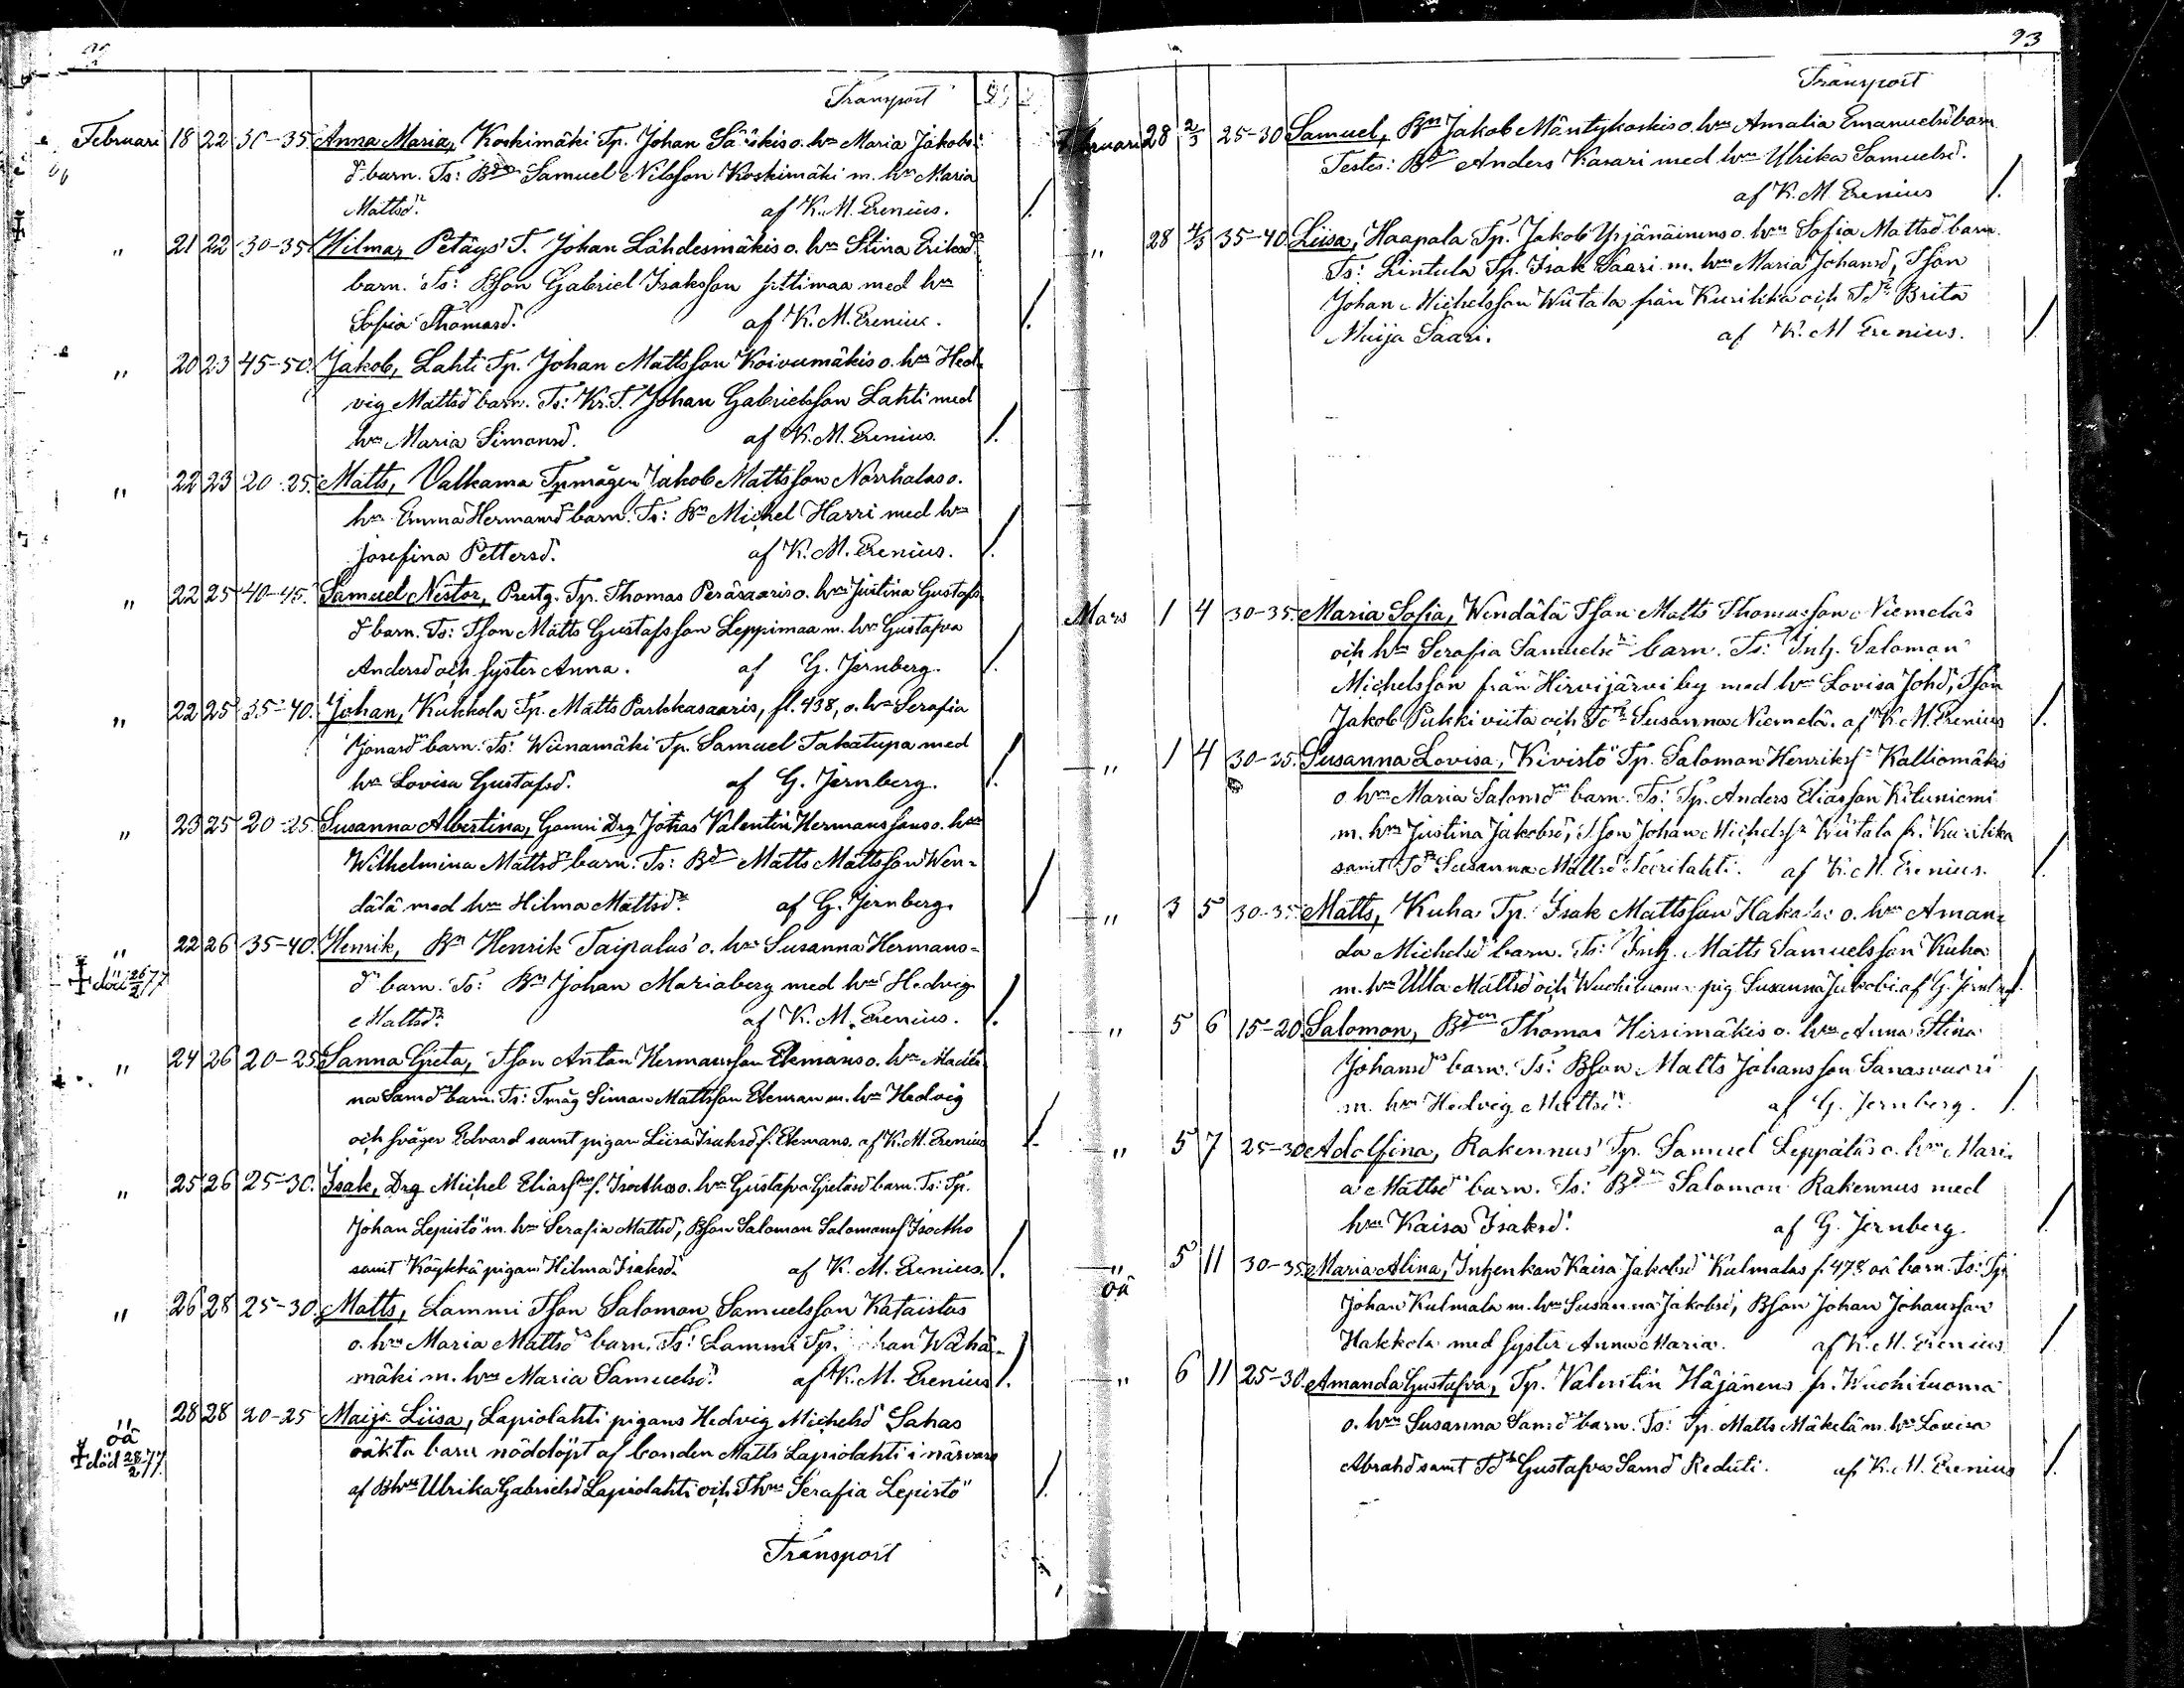 Transport
Februari 18 22 30-35 Anna Maria, Koskimäki Tp. Johan Sääskis o. hn Maria Jakobs
dr barn. Ts: Bdn Samuel Nilsson Koskimäki m. hn Maria
Mattsdr. af K. M. Erenius. /.
" 21 22 30-35 Wilma, Petäys T. Johan Lähdesmäkis o. hn Stina Eriksdr
barn. Ts: BSon Gabriel Isaksson med hn
Sofia Thomasd. af K. M. Erenius. /.
" 20 23 45-50. Jakob, Lahti Tp. Johan Mattsson Koivumäkis o. hn Hed-
vig Mattsd barn. Ts: Kr. T. Johan Gabrielsson Lahti med
hn Maria Simonsd. af K. M. Erenius. /.
" 22 23 20-25. Matts, Valkama Tpmågen Jakob Mattsson Norrhalas o.
hn Emma Hermansd barn. Ts: Bn Michel Harri med hn
Josefina Pettersd. af K. M. Erenius. /.
" 22 25 40-45. Samuel Nestor, Prestg. Tp. Thomas Peräsaaris o. hn Justina Gustafs
dr barn. Ts: TSon Matts Gustafsson Leppimaa m. hn Gustafva
Andersd och syster Anna. af G. Jernberg. /.
" 22 25 35-40. Johan, Kukkola Tp. Matts Parkkasaaris, fl. 438, o. hn Serafia
Jonasd barn. Ts: Wiinamäki Tp. Samuel Takatupa med
hn Lovisa Gustafsd. af G. Jernberg. /.
" 23 25 20-25 Susanna Albertina, Gamri Drg Johas Valentin Hermanssons o. hn
Wilhelmina Mattsd barn. Ts: Bdn Matts Mattsson Wen-
dälä med hn Hilma Mattsdr. af G. Jernberg. /
" 22 26 35-40. Henrik, Bn Henrik Taipalus o. hn Susanna Hermans-
död 26/2 77 dr barn. Ts: Bn Johan Mariaberg med hn Hedvig
Mattsdr. af K. M. Erenius. /.
" 24 26 20-25 Sanna Greta, TSon Anton Hermansson Ekmans o. hn
na Samd barn. Ts: Tmåg Simon Mattsson Ekman m. hn Hedvig
och svåger Edvard samt pigan Liisa Isaksd f. Ekmans. af K. M. Erenius /.
" 25 26 25-30. Isak, Drg Michel Eliass f. Isotho o. hn Gustafva barn. Ts: Tp.
Johan Lepistö m. hn Serafia Mattsd, BSon Salomon Salomonss Isotho
samt Köykkä pigan Hilma Isaksd. af K. M. Erenius. /.
" 26 28 25-30. Matts, Lammi TSon Salomon Samuelsson Kataistos
o. hn Maria Mattsd barn. Ts: Lammi Tp. Johan Wähä-
mäki m. hn Maria Samuelsd. af K. M. Erenius /.
" 28 28 20-25 Maija Liisa, Lapiolahti pigans Hedvig Michelsd Sahas
oä död 28/2 77 oäkta barn nöddöpt af bonden Matts Lapiolahti i närvaro
af Bhn Ulrika Gabrielsd Lapiolahti och Thn Serafia Lepistö /.
Transport
93
Transport
Februari 28 2/3 25-30 Samuel, Bn Jakob Mäntykoskis o. hn Amalia Emanuelsd barn
Testes: Bdn Anders Kasari med hn Ulrika Samuelsd.
af K. M Erenius /.
" 28 4/3 35-40. Liisa, Haapala Tp. Jakob Yrjänäinens o. hn Sofia Mattsd barn.
Ts: Lintula Tp. Isak Saari m. hn Maria Johansd, TSon
Johan Michelsson Wiitala från Kurikka och Tdr Brita
Maija Saari. af K. M Erenius. /.
Mars 1 4 30-35. Maria Sofia, Wendälä TSon Matts Thomasson Niemeläs
och hn Serafia Samuelsd barn. Ts: Inh. Salomon
Michelsson från Hirvijärvi by med hn Lovisa Johd, TSon
Jakob Pukkiviita och Tdr Susanna Niemelä. af K. M. Erenius /.
" 1 4 30-35. Susanna Lovisa, Kivistö Tp. Salomon Henrikss Kalliomäkis
o. hn Maria Salomd barn. Ts: Tp. Anders Eliasson Kiluniemi
m. hn Justina Jakobsd, TSon Johan Michelss Wiitala fr. Kurikka
samt Tdr Susanna Mattsd. af K. M. Erenius. /.
" 3 5 30-35 Matts, Kuha Tp. Isak Mattsson o. hn Aman-
da Michelsd barn. Ts: Inh. Matts Samuelsson Kuha
m. hn Ulla Mattsd och pig Susanna Jakobs. af G. Jernberg.
" 5 6 15-20 Salomon, Bden Thomas Hirsimäkis o. hn Anna Stina
Johansd barn. Ts: BSon Matts Johansson Sanasvuori
m. hn Hedvig Mattsdr. af G. Jernberg. /.
" 5 7 25-30 Adolfina, Rakennus Tp. Samuel Leppäläs o. hn Mari-
a Mattsd barn. Ts: Bdn Salomon Rakennus med
hn Kaisa Isaksd. af G. Jernberg. /.
" 5 11 30-35. Maria Alina, Inhenkan Kaisa Jakobsd Kulmalas f. 478 oä barn. Ts: Tp
oä Johan Kulmala m. hn Susanna Jakobsd, BSon Johan Johansson
Hakkola med syster Anna Maria. af K. M. Erenius. /
" 6 11 25-30. Amanda Gustafva, Tp. Valentin Häjänens fr. Wuohiluoma
o. hn Susanna Samd barn. Ts: Tp. Matts Mäkelä m. hn Lovisa
Abrahd samt Tdr Gustafva Samd Reduti. af K. M. Erenius /.